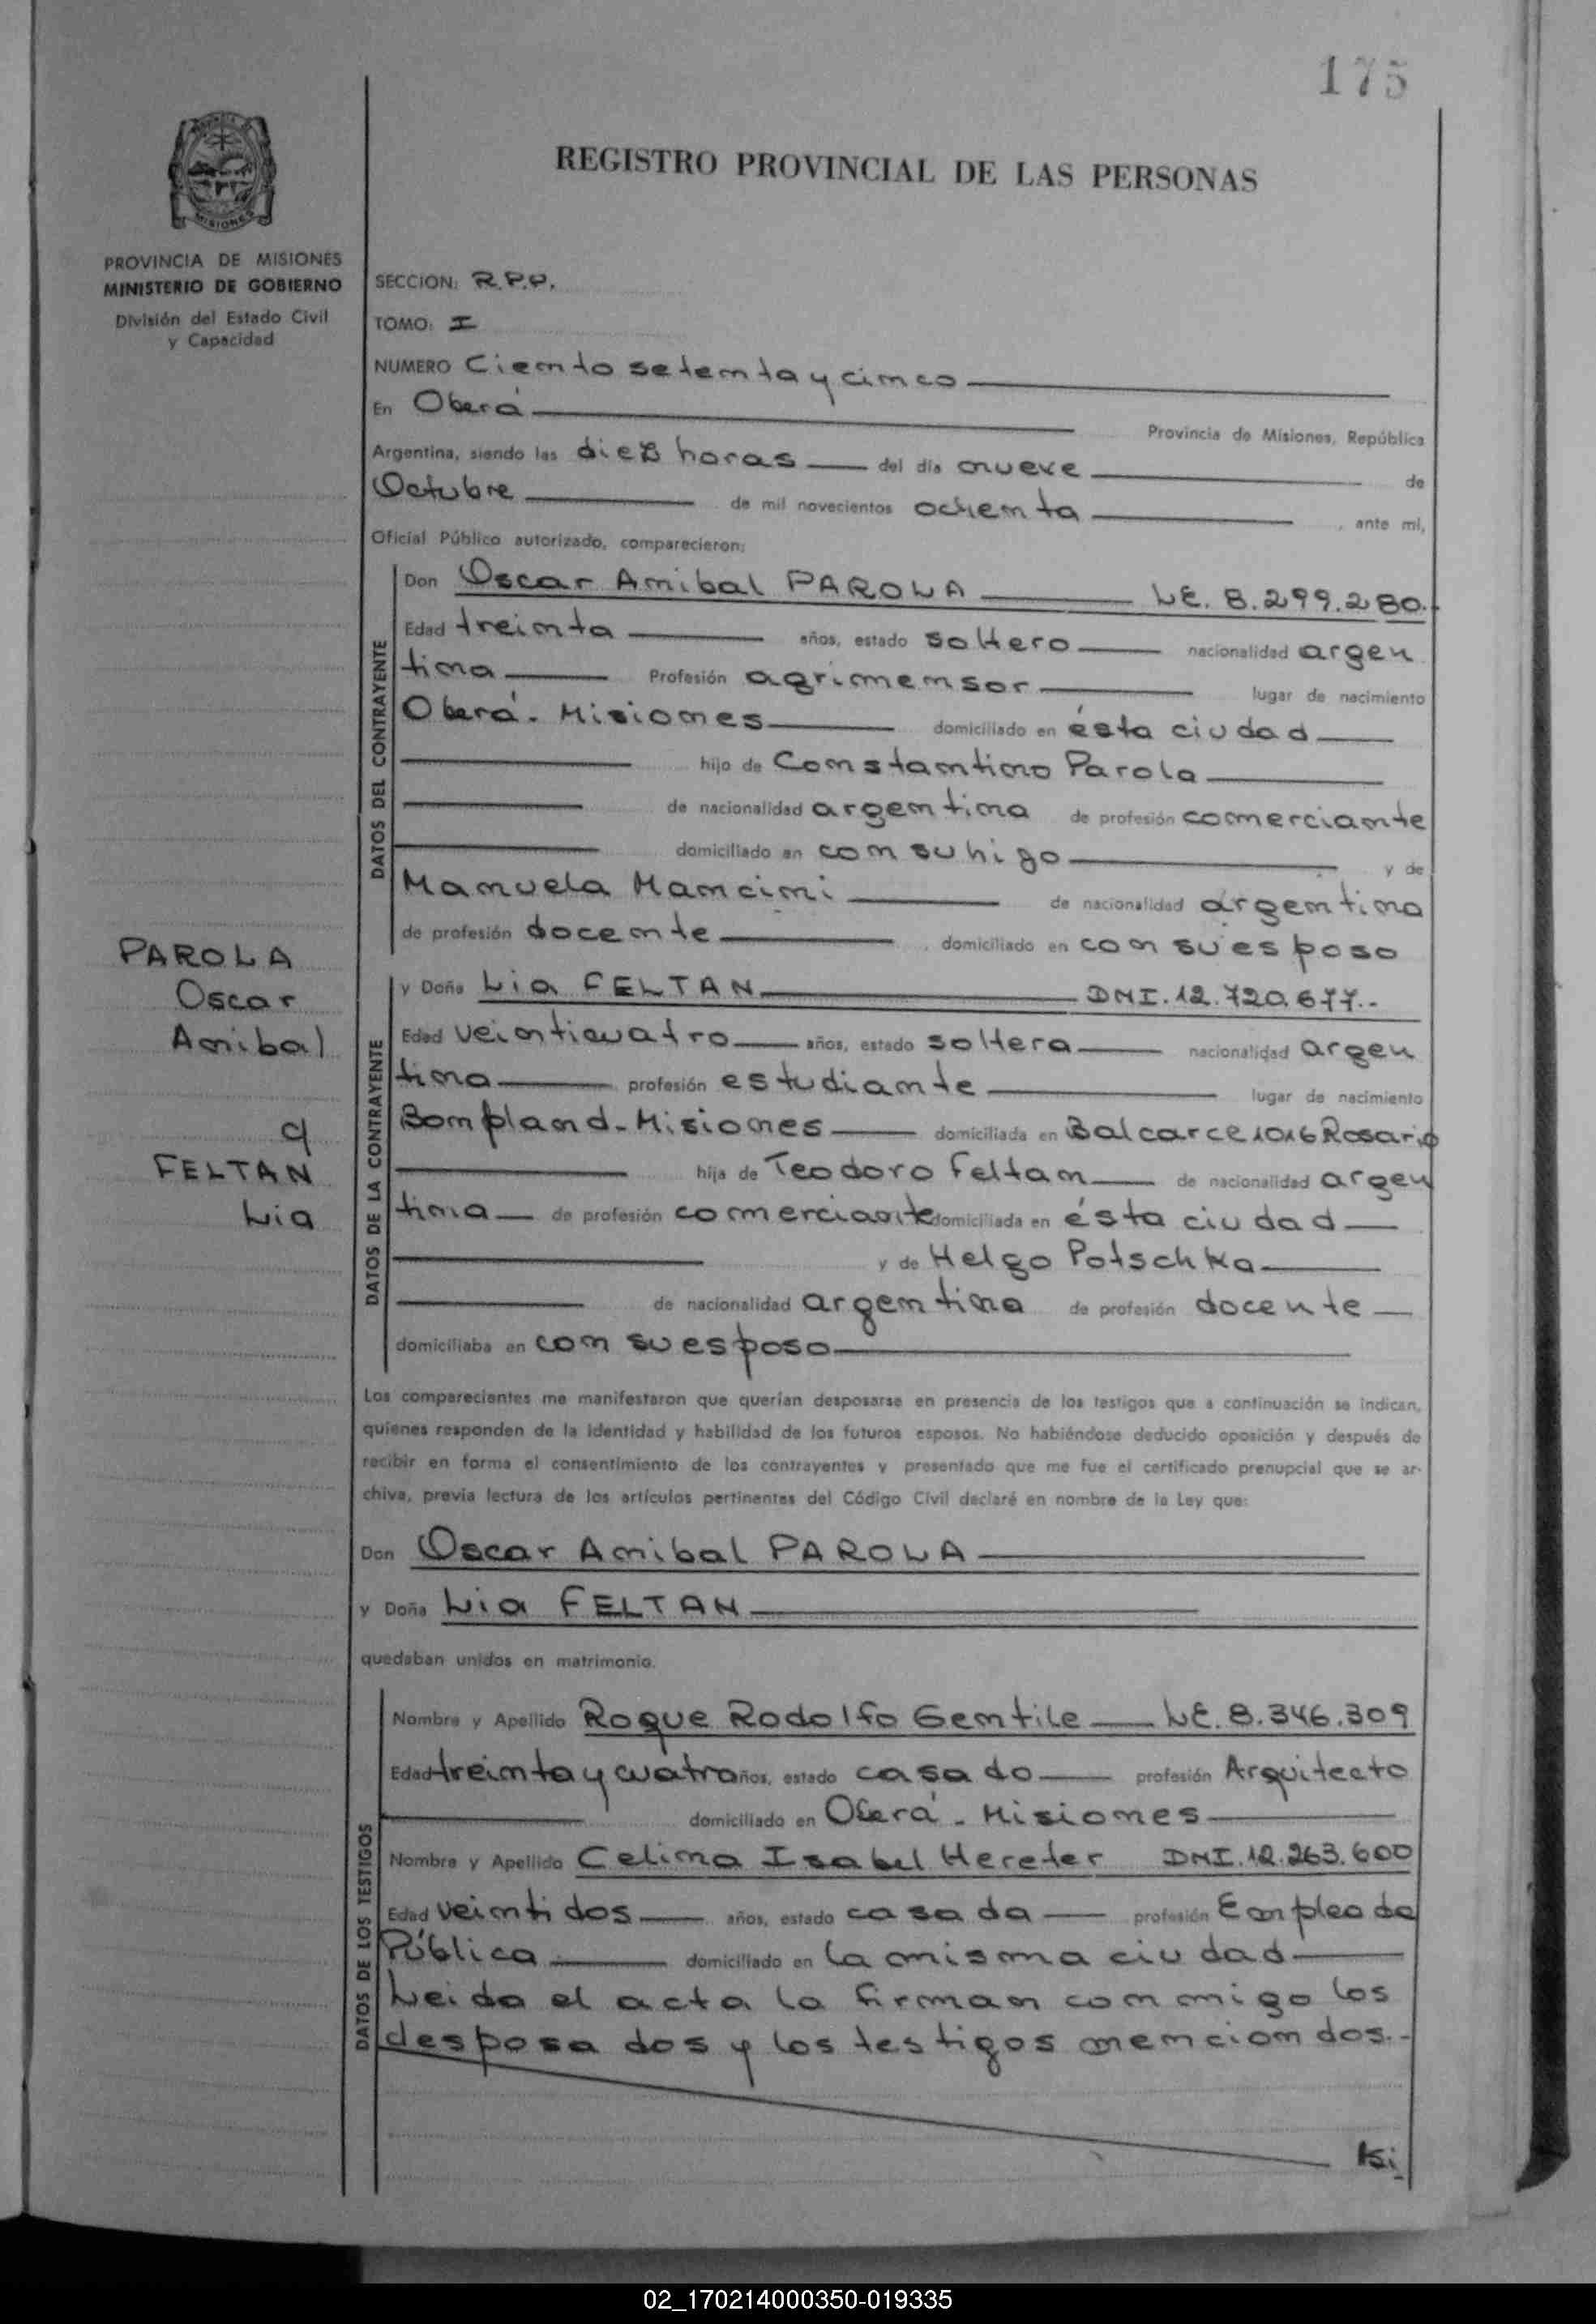 175
REGISTRO PROVINCIAL DE LAS PERSONAS
MISIONES
PROVINCIA DE MISIONES
MINISTERIO DE GOBIERNO
División del Estado Civil
y Capacidad
SECCION: R.P.O.
TOMO: I
NUMERO Ciento setenta y cinco
En Oberá Provincia de Misiones, República
Argentina, siendo las diez horas del día nueve de
Octubre de mil novecientos ochenta , ante mí,
Oficial Público autorizado, comparecieron:
DATOS DEL CONTRAYENTE
Don Oscar Anibal PAROLA LE. 8.299.280.
Edad treinta años, estado soltero nacionalidad argen
tina Profesión agrimensor lugar de nacimiento
Oberá. Misiones domiciliado en ésta ciudad
hijo de Constantino Parola
de nacionalidad argentina de profesión comerciante
domiciliado en con su higo y de
Manuela Mancini de nacionalidad argentina
de profesión docente , domiciliado en con su esposo
PAROLA
Oscar
Anibal
y
FELTAN
Lia
DATOS DE LA CONTRAYENTE
y Doña Lia FELTAN DNI. 12.720.677.-
Edad veinticuatro años, estado soltera nacionalidad argen
tina profesión estudiante lugar de nacimiento
Bompland-Misiones domiciliada en Balcarce 1016 Rosario
hija de Teodoro Feltan de nacionalidad argen
tina de profesión comerciante domiciliada en ésta ciudad
y de Helgo Potschka
de nacionalidad argentina de profesión docente
domiciliaba en con su esposo
Los comparecientes me manifestaron que querían desposarse en presencia de los testigos que a continuación se indican,
quienes responden de la identidad y habilidad de los futuros esposos. No habiéndose deducido oposición y después de
recibir en forma el consentimiento de los contrayentes y presentado que me fue el certificado prenupcial que se ar-
chiva, previa lectura de los artículos pertinentes del Código Civil declaré en nombre de la Ley que:
Don Oscar Anibal PAROLA
y Doña Lia FELTAN
quedaban unidos en matrimonio.
DATOS DE LOS TESTIGOS
Nombre y Apellido Roque Rodolfo Gentile LE. 8.346.309
Edad treinta y cuatro años, estado casado profesión Arquitecto
domiciliado en Oberá - Misiones
Nombre y Apellido Celina Isabel Hereter DNI. 12.263.600
Edad veintidos años, estado casada profesión Empleada
Pública domiciliado en la misma ciudad
Leida el acta la firman conmigo los
desposados y los testigos menciondos.-
Ki
02_170214000350-019335